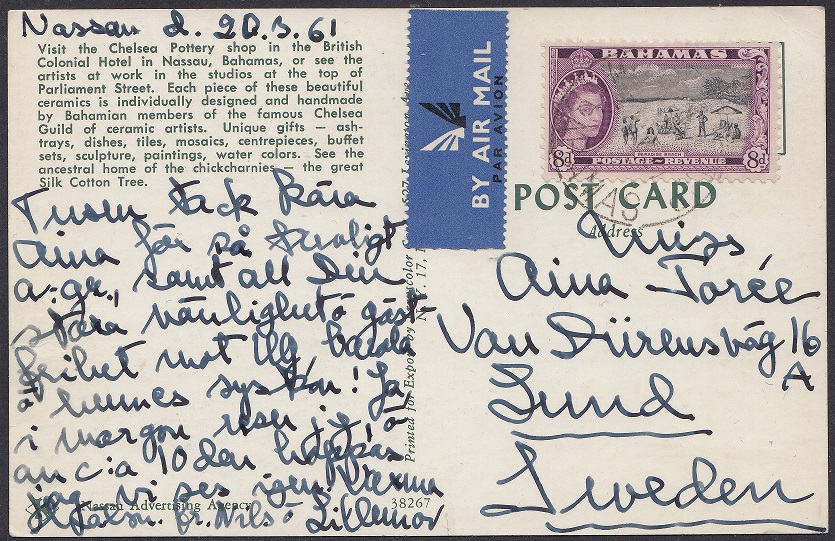 Nassau d. 20.3.61
Visit the Chelsea Pottery shop in the British
Colonial Hotel in Nassau, Bahamas, or see the
artists at work in the studios at the top of
Parliament Street. Each piece of these beautiful
ceramics is individually designed and handmade
by Bahamian members of the famous Chelsea
Guild of ceramic artists. Unique gifts — ash-
trays, dishes, tiles, mosaics, centrepieces, buffet
sets, sculpture, paintings, water colors. See the
ancestral home of the chickcharnies — the great
Silk Cotton Tree.
Tusen tack kära
Aina för så
samt all Din
stora vänlighet o gäst-
frihet mot
o hennes syskon! Ja,
i morgon reser jag, o
om c:a 10 den hoppas
jag vi ses igen. Varma
hälsn. fr. Nils o
Nassau Advertising Agency
38267
Printed for Export by
N. Y. 17,
BY AIR MAIL
PAR AVION
BAHAMAS
PARADISE BEACH
8d POSTAGE - REVENUE 8d
POST CARD
Address
Aina Torée
Van Dürensväg 16
A
Lund
Sweden